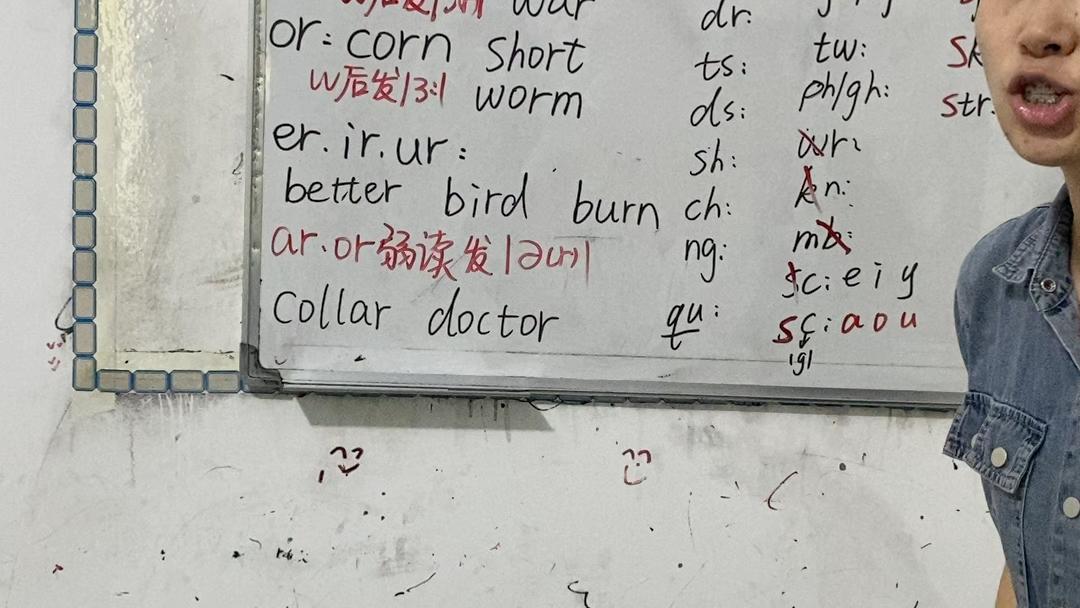 w后发|ɔ:| war
or: corn short
w后发|ɜ:| worm
er. ir. ur:
better bird burn
ar. or弱读发|ə(r)|
collar doctor
dr:
ts:
ds:
sh:
ch:
ng:
qu:
tw:
ph/gh:
wr:
kn:
mb:
sc: e i y
sc: a o u
|g|
sk
str: